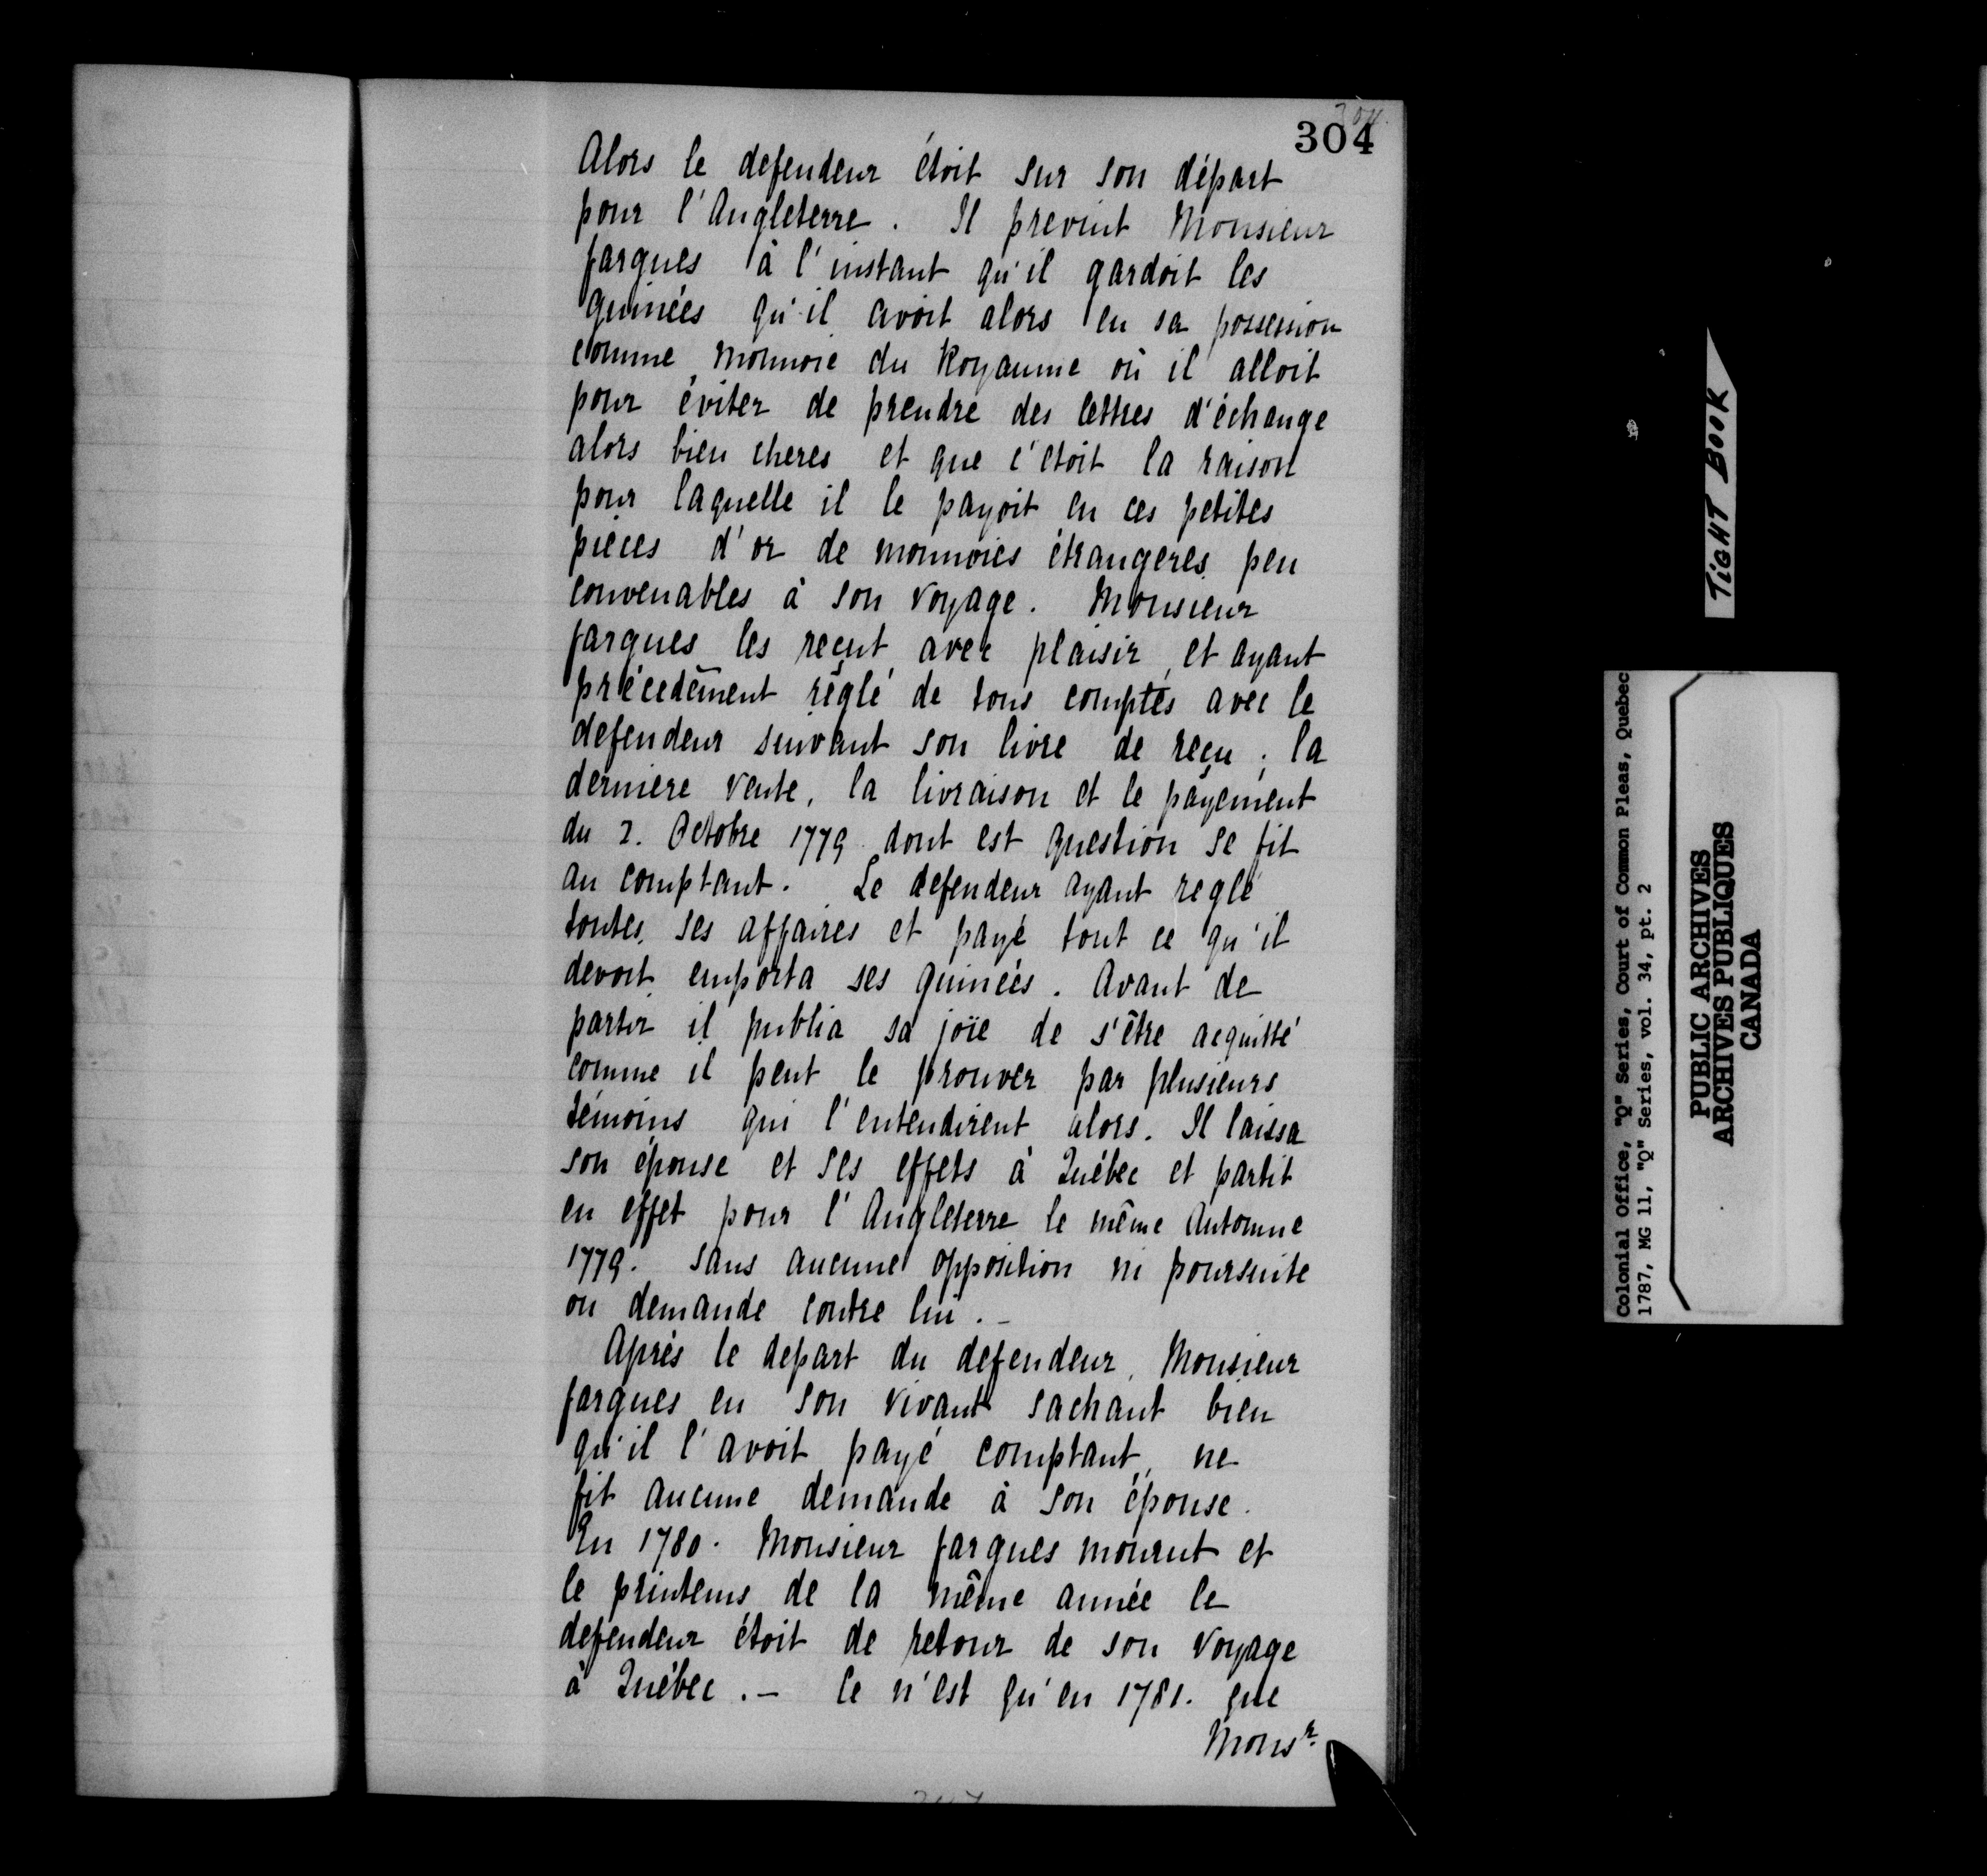 304.
304
Alors le defendeur étoit sur son départ
pour l'Angleterre. Il prevint Monsieur
fargues à l'instant qu'il gardoit les
guinées qu'il avoit alors en sa possession
comme monnoie du Royaume où il alloit
pour éviter de prendre des lettres d'échange
alors bien cheres et que c'etoit la raison
pour laquelle il le payoit en ces petites
pièces d'or de monnoies étrangeres peu
convenables à son voyage. Monsieur
fargues les reçut avec plaisir, et ayant
précedêment réglé de tous comptes avec le
defendeur suivant son livre de reçu; la
derniere vente, la livraison et le payement
du 2. Octobre 1779 dont est question se fit
au comptant. Le defendeur ayant reglé
toutes ses affaires et payé tout ce qu'il
devoit emporta ses guinées. Avant de
partir il publia sa joïe de s'être acquitté
comme il peut le prouver par plusieurs
témoins qui l'entendirent alors. Il laissa
son épouse et ses effets à Québec et partit
en effet pour l'Angleterre le même Automne
1779. sans aucune opposition ni poursuite
ou demande contre lui.-
Après le depart du defendeur, Monsieur
fargues en son vivant sachant bien
qu'il l'avoit payé comptant, ne
fit aucune demande à son épouse.
En 1780. Monsieur fargues mourut et
le printems de la même année le
defendeur étoit de retour de son voyage
à Québec.- Ce n'est qu'en 1781. que
Monsr.
TIGHT BOOK
Colonial Office, "Q" Series, Court of Common Pleas, Quebec
1787, MG 11, "Q" Series, vol. 34, pt. 2
PUBLIC ARCHIVES
ARCHIVES PUBLIQUES
CANADA